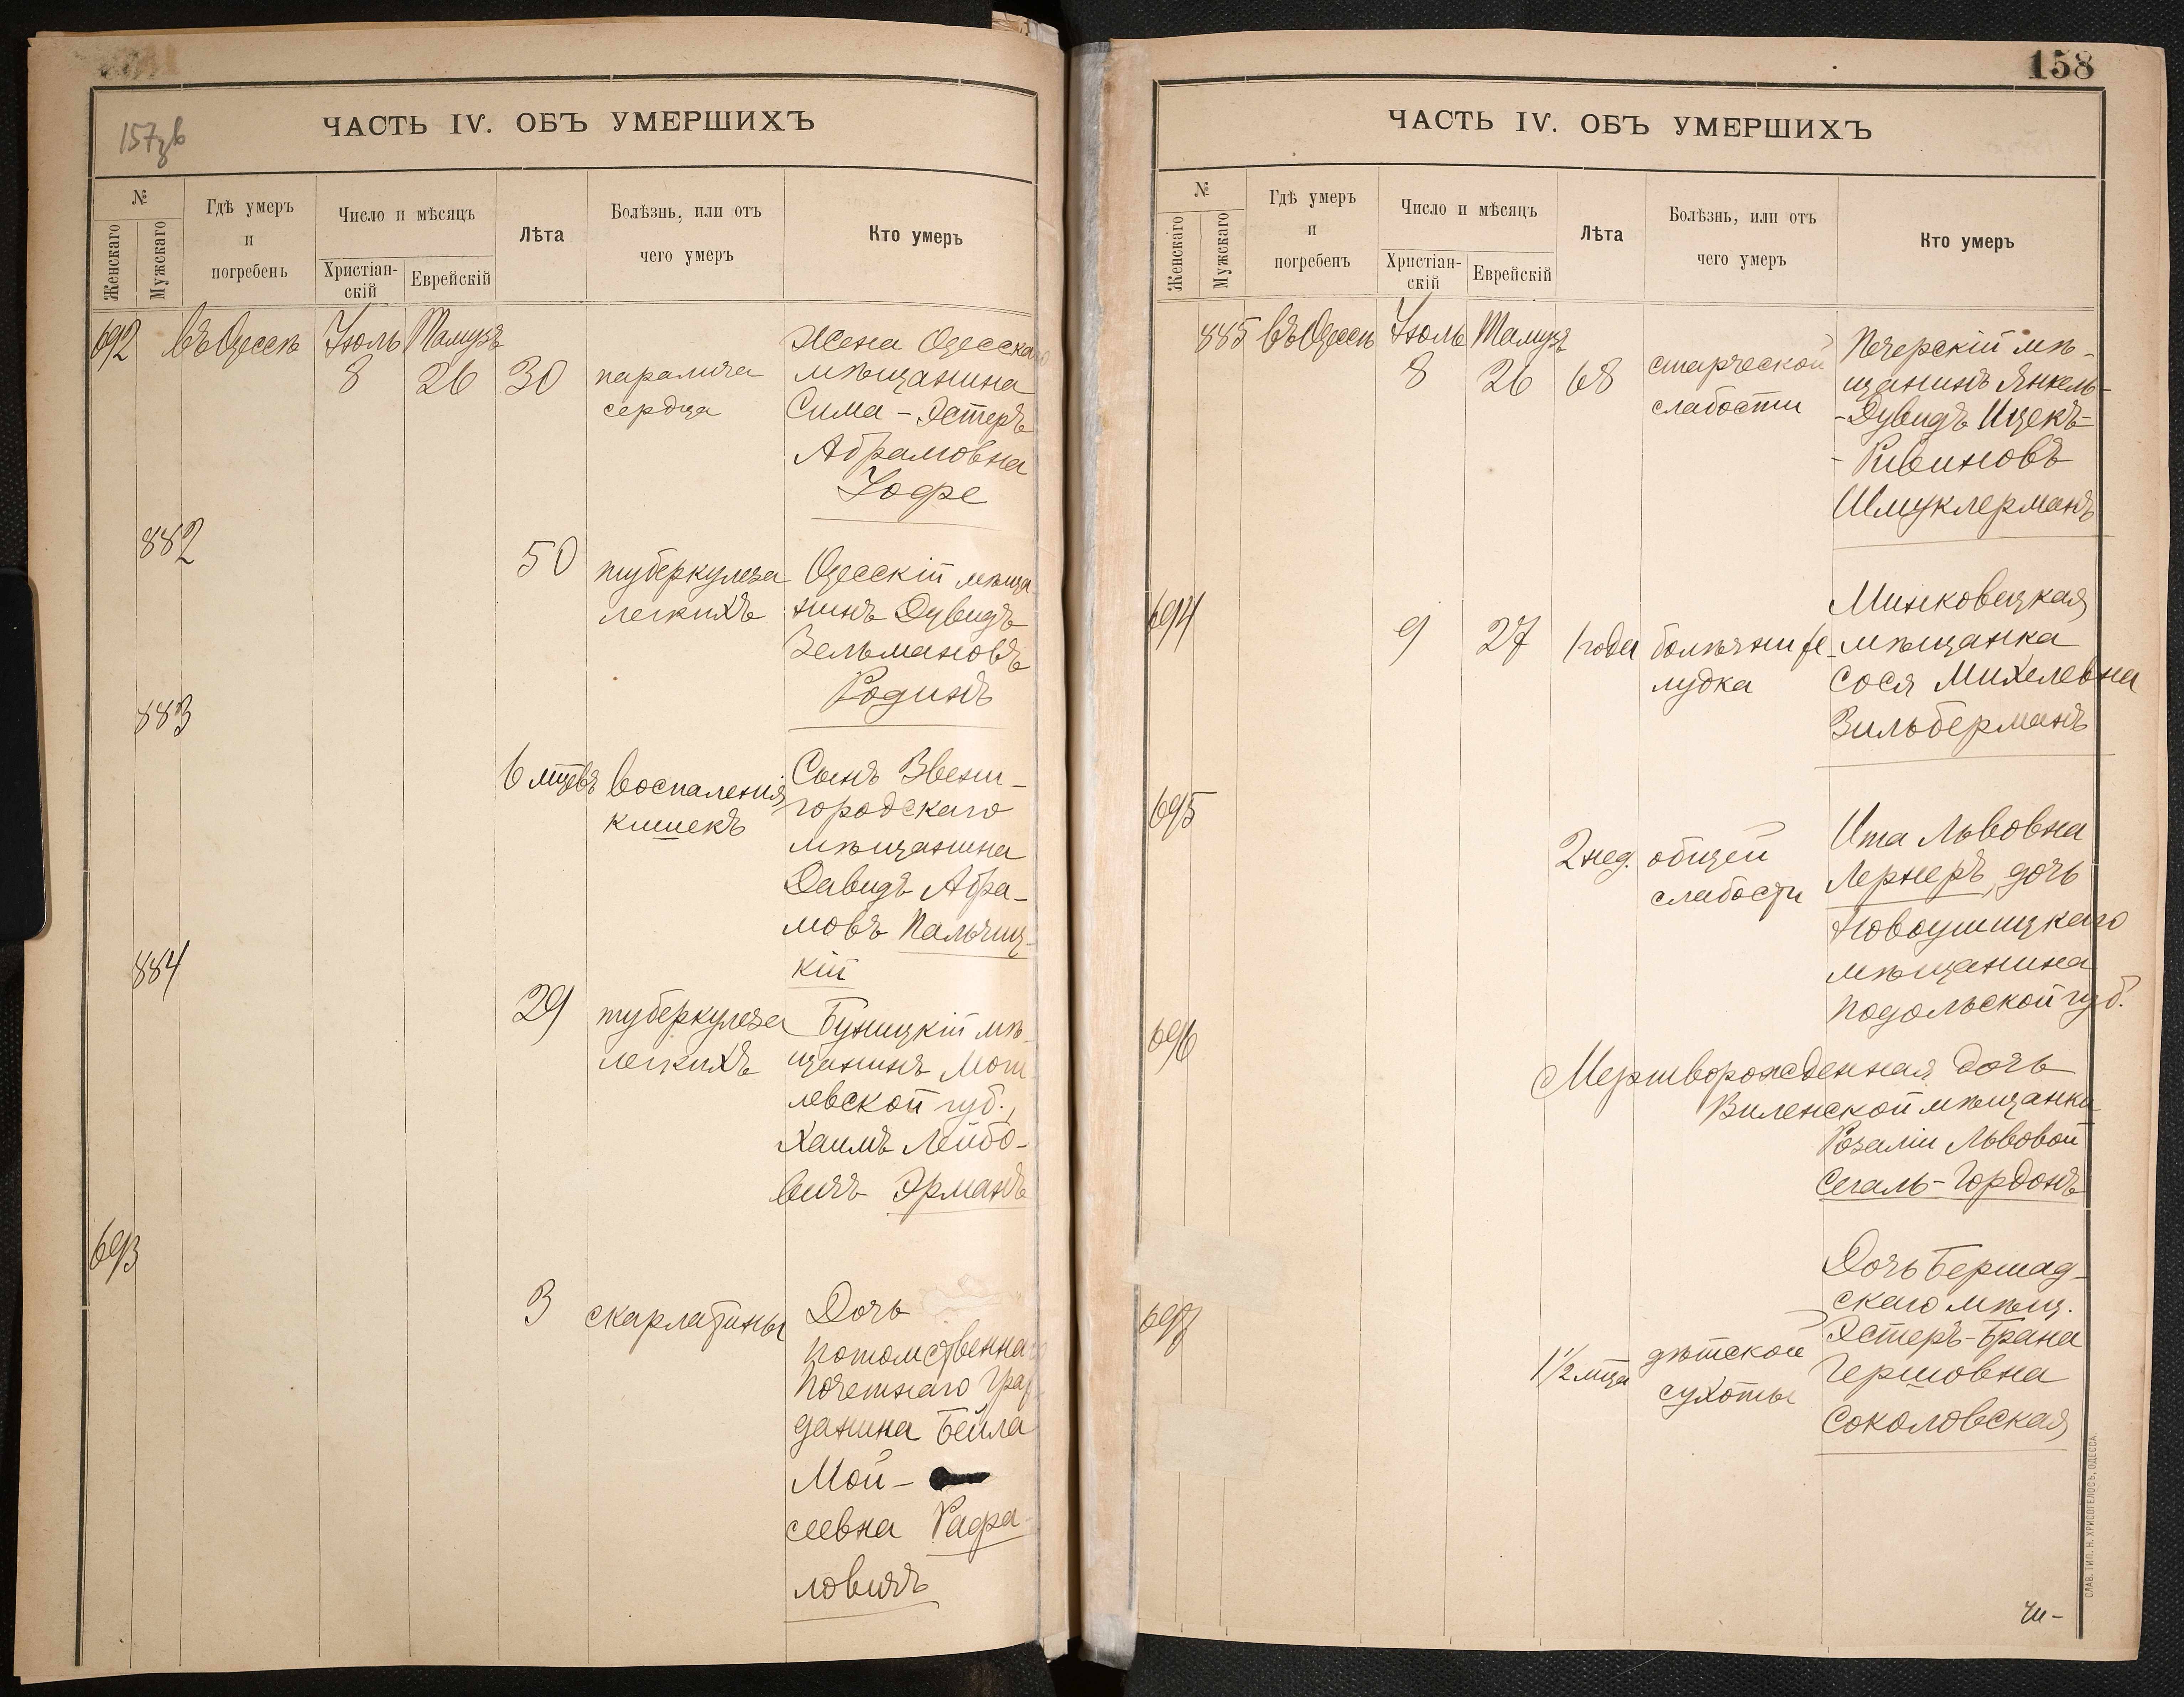 157зв
ЧАСТЬ IV. ОБЪ УМЕРШИХЪ
№
Женскаго
Мужскаго
Гдѣ умеръ
и
погребенъ
Число и мѣсяцъ
Христіан-
скій
Еврейскій
Лѣта
Болѣзнь, или отъ
чего умеръ
Кто умеръ
692 въ Одессѣ Іюль Тамузъ
8 26 30
паралича
сердца
Жена Одесскаго
мѣщанина
Сима-Эстеръ
Абрамовна
Іофе
882
50
туберкулеза
легкихъ
Одесскій мѣща
нинъ Дувидъ
Зельмановъ
Родинъ
883
6 мцевъ
воспаленія
кишекъ
Сынъ Звени-
городскаго
мѣщанина
Давидъ Абра-
мовъ Пальчиц-
кій
884
29
туберкулеза
легкихъ
мѣ-
щанинъ Моги
левской губ.,
Хаимъ Лейбо-
вичъ Эрманъ
693
3
скарлатины
Дочь
потомственна
Почетнаго Граж
данина Бейла
Мои-
сеевна Рафа-
ловичъ
158
ЧАСТЬ IV. ОБЪ УМЕРШИХЪ
№
Женскаго
Мужскаго
Гдѣ умеръ
и
погребенъ
Число и мѣсяцъ
Христіан-
скій
Еврейскій
Лѣта
Болѣзнь, или отъ
чего умеръ
Кто умеръ
885 въ Одессѣ Іюль Тамузъ
8 26 68
старческой
слабости
Печерскій мѣ-
щанинъ Янкель-
-Дувидъ Ицекъ-
-Ривиновъ
Шмуклерманъ
694
9 27 1 года
болѣзни же
лудка
Минковецкая
мѣщанка
Сося Михелевна
Зильберманъ
695
2 нед.
общей
слабости
Ита Львовна
Лернеръ, дочь
Новоушицкаго
мѣщанина
Подольской губ.
696
Мертворожденная дочь
Виленской мѣщанки
Розаліи Львовой
Сегаль-Гордонъ
697
1 1/2 мца
дѣтской
сухоты
Дочь Бершад-
скаго мѣщ.
Эстеръ-Брана
Гершовна
Соколовская
СЛАВ. ТИП. Н. ХРИСОГЕЛОСЪ, ОДЕССА.